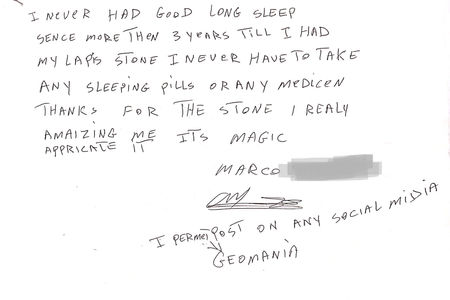 I NEVER HAD GOOD LONG SLEEP
SENCE MORE THEN 3 YEARS TILL I HAD
MY LAPIS STONE I NEVER HAVE TO TAKE
ANY SLEEPING PILLS OR ANY MEDICEN
THANKS FOR THE STONE I REALY
AMAIZING ME ITS MAGIC
APPRICATE IT
MARCO
I PERMEI POST ON ANY SOCIAL MIDIA
GEOMANIA